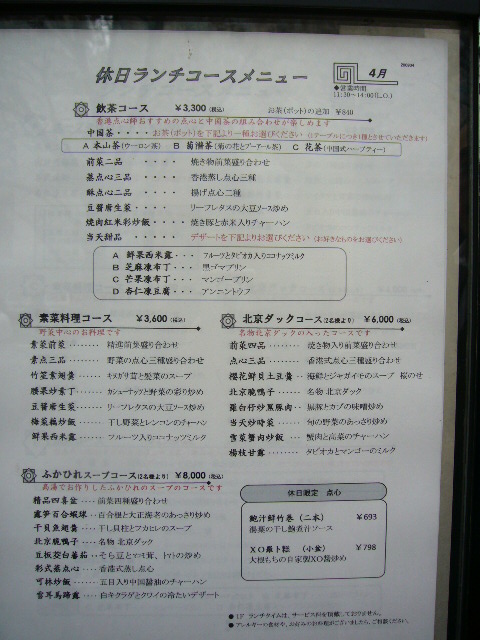 休日ランチコースメニュー
4月
●営業時間
11:30～14:00(L.O.)
飲茶コース ¥3,300 (税込) お茶(ポット)の追加 ¥840
香港点心師おすすめの点心と中国茶の組み合わせが楽しめます
中国茶・・・・ お茶(ポット)を下記より一種お選びください (1テーブルにつき1種とさせていただきます)
A 本山茶(ウーロン茶) B 菊普茶(菊の花とプーアール茶) C 花茶(中国式ハーブティー)
前菜二品 ・・・・ 焼き物前菜盛り合わせ
蒸点心三品 ・・・・ 香港蒸し点心三種
酥点心二品 ・・・・ 揚げ点心二種
豆醤唐生菜・・・・ リーフレタスの大豆ソース炒め
焼肉紅米彩炒飯・・・・ 焼き豚と赤米入りチャーハン
当天甜品 ・・・・ デザートを下記よりお選びください (お好きなものをお選びください)
A 鮮果西米露・・・ フルーツとタピオカ入りココナッツミルク
B 芝麻凍布丁・・・ 黒ゴマプリン
C 芒果凍布丁・・・ マンゴープリン
D 杏仁凍豆腐・・・ アンニントウフ
素菜料理コース ¥3,600 (税込)
野菜中心のお料理です
素菜前菜・・・・ 精進前菜盛り合わせ
素点三品・・・・ 野菜の点心三種盛り合わせ
竹笙素翅羹・・・ キヌガサ茸と髪菜のスープ
腰果炒素丁・・・ カシューナッツと野菜の彩り炒め
豆醤唐生菜・・・ リーフレタスの大豆ソース炒め
梅菜藕炒飯・・・ 干し野菜とレンコンのチャーハン
鮮果西米露・・・ フルーツ入りココナッツミルク
北京ダックコース (2名様より) ¥6,000 (税込)
名物北京ダックの入ったコースです
前菜四品・・・・ 焼き物入り前菜盛り合わせ
点心三品・・・・ 香港式点心三種盛り合わせ
櫻花鮮貝土豆羹・・ 海鮮とジャガイモのスープ 桜のせ
北京脆鴨子・・・・ 名物 北京ダック
羅白仔炒黒豚肉・・ 黒豚とカブの味噌炒め
当天炒時菜・・・ 旬の野菜のあっさり炒め
雪菜蟹肉炒飯・・・ 蟹肉と高菜のチャーハン
楊枝甘露・・・・ タピオカとマンゴーのミルク
ふかひれスープコース (2名様より) ¥8,000 (税込)
上湯でお作りしたふかひれのスープのコースです
精品四喜盆・・・・ 前菜四種盛り合わせ
露笋百合蝦球・・ 百合根と大正海老のあっさり炒め
干貝魚翅羹・・・ 干し貝柱とフカヒレのスープ
北京脆鴨子・・・ 名物 北京ダック
豆板茭白蕃茄・・ そら豆とマコモ茸、トマトの炒め
彩式蒸点心・・・ 香港式蒸し点心
可林炒飯・・・・ 五目入り中国醤油のチャーハン
雪耳馬蹄露・・・ 白キクラゲとクワイの冷たいデザート
休日限定 点心
鮑汁鮮竹巻 (二本) ¥693
湯葉の干し鮑煮汁ソース
XO蘿卜糕 (小盆) ¥798
大根もちの自家製XO醤炒め
●1F ランチタイムは、サービス料を頂戴しておりません。
●アレルギーの食材や、お好みのお料理がございましたら、ご相談ください。